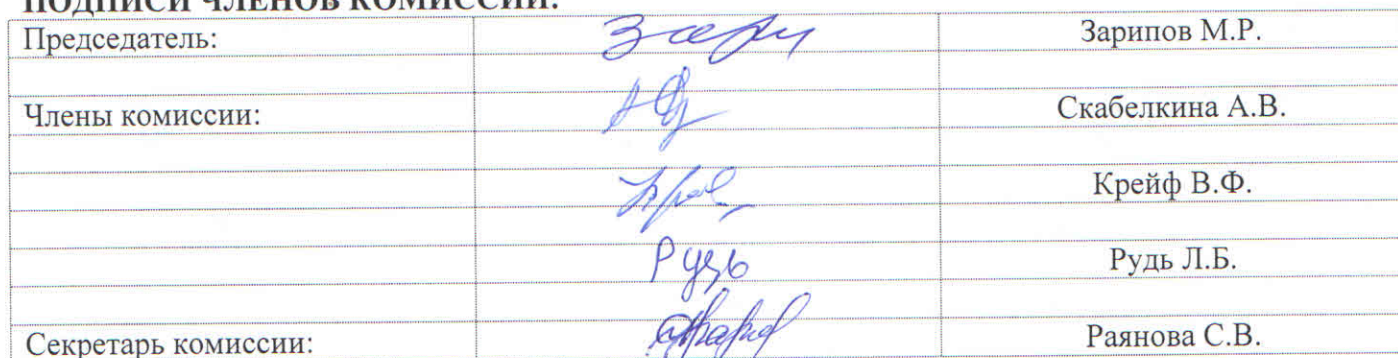 ПОДПИСИ ЧЛЕНОВ КОМИССИИ:
Председатель: Зарипов М.Р.
Члены комиссии: Скабелкина А.В.
Крейф В.Ф.
Рудь Рудь Л.Б.
Секретарь комиссии: Раянова С.В.